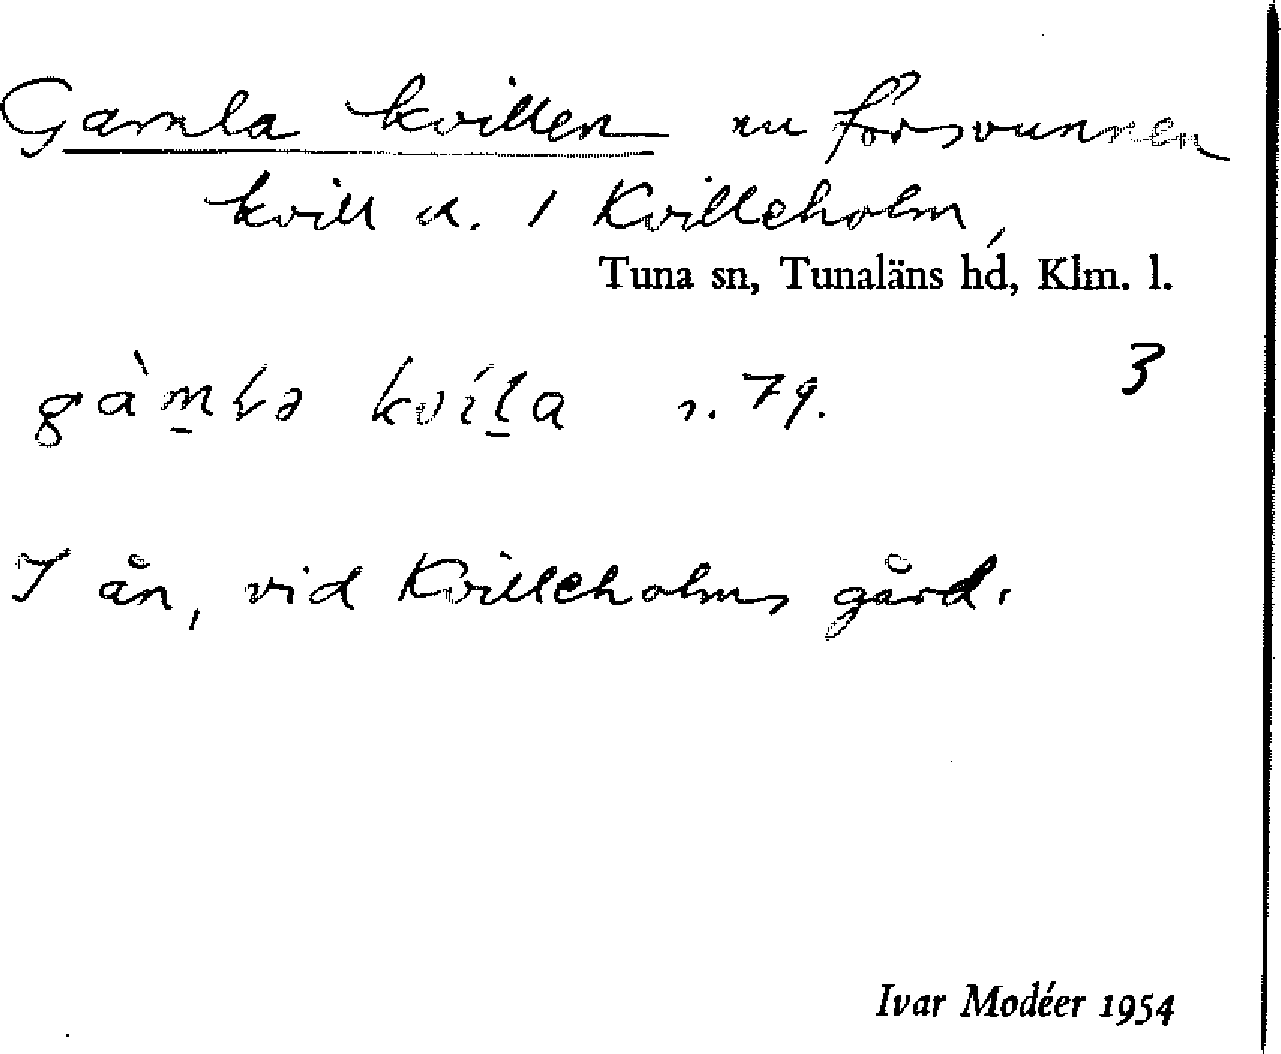 Gamla kvillen nu försvunnen
kvill u. 1 Kvilleholm,
Tuna sn, Tunaläns hd, Klm. l.
3
s. 79.
I ån, vid Kvilleholms gård.
Ivar Modéer 1954